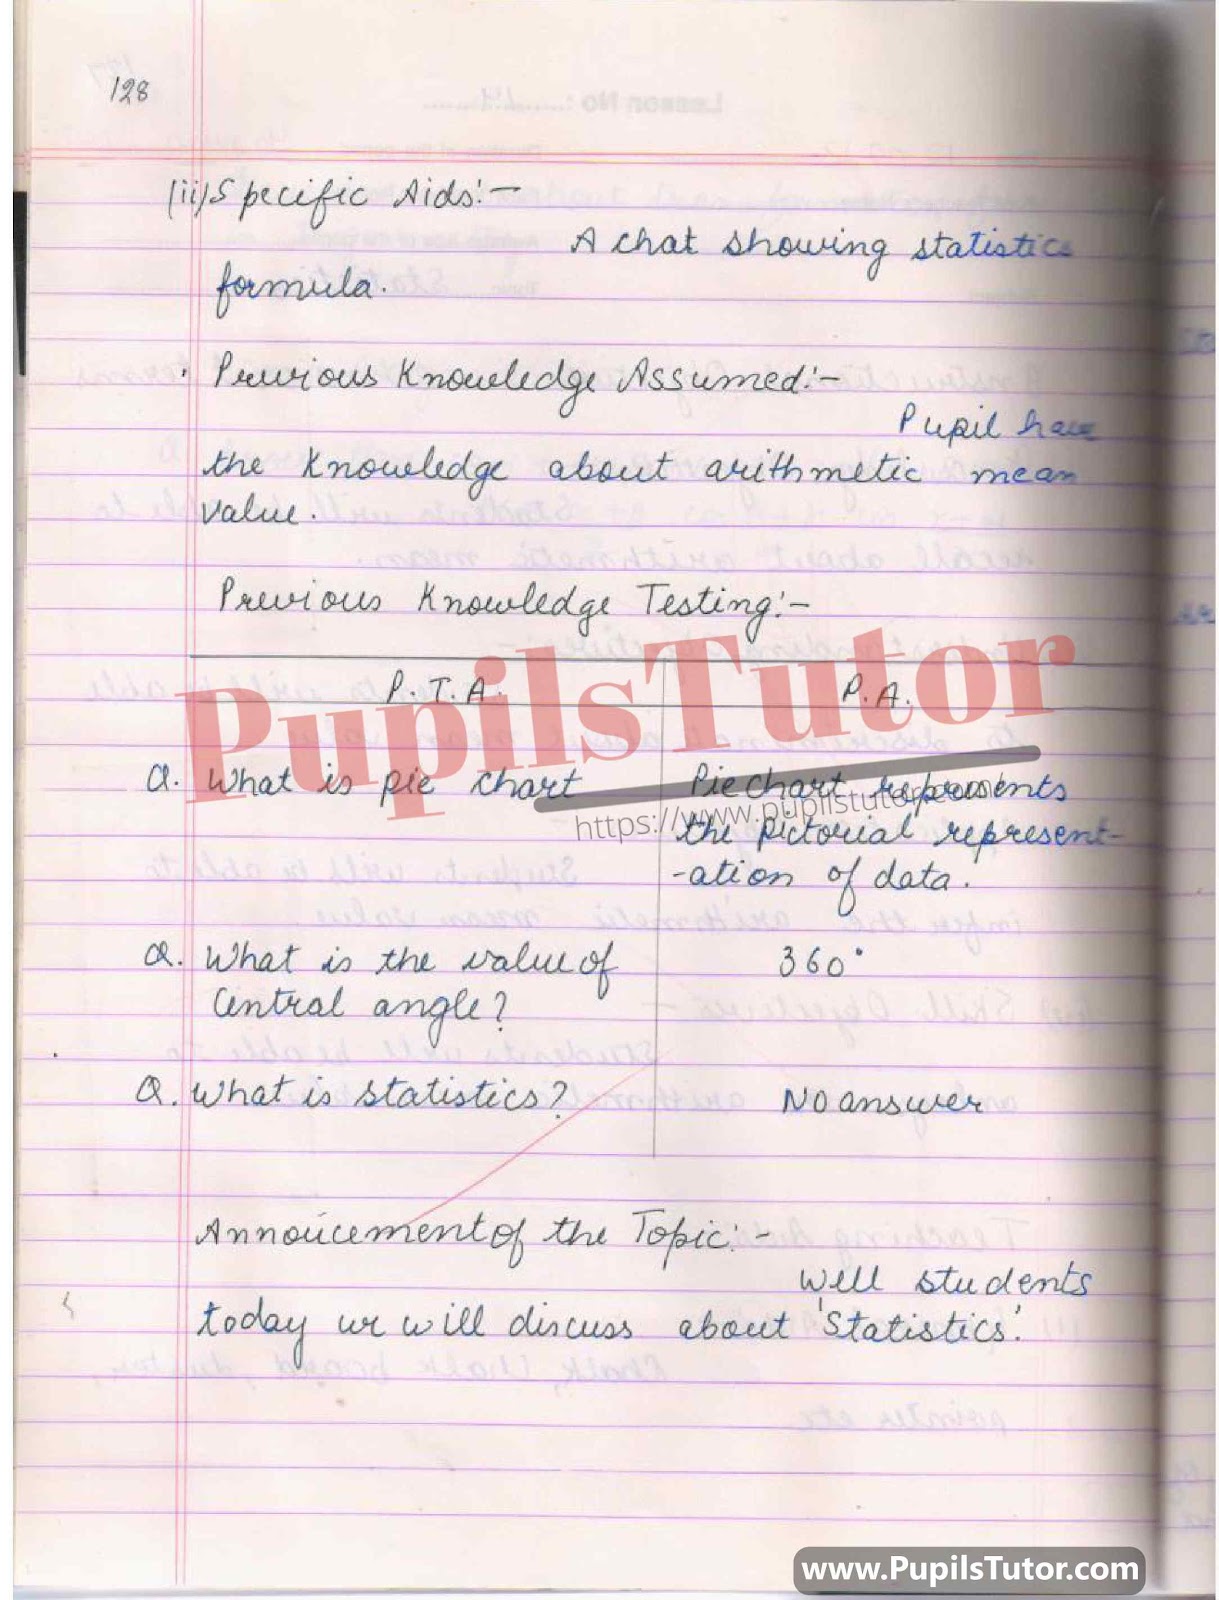 128
(ii) Specific Aids:-
A chat showing statistics
formula.
Previous Knowledge Assumed:-
Pupil have
the knowledge about arithmetic mean
value.
Previous Knowledge Testing:-
P.T.A. P.A.
Q. What is pie chart Pie chart represents
the pictorial represent-
-ation of data.
Q. What is the value of 360°
Central angle?
Q. What is statistics? No answer
Annoucement of the Topic:-
Well students
today we will discuss about 'Statistics'.
PupilsTutor
https://www.pupilstutor.com
www.PupilsTutor.com